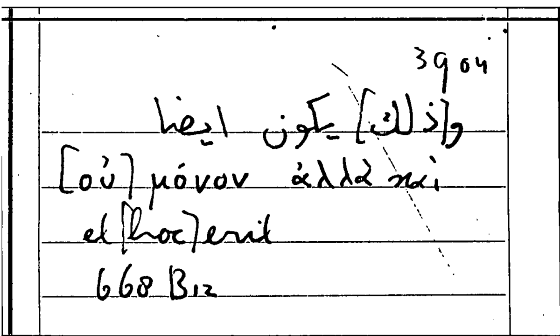 3904
و[ذلك] يكون ايضا
[οὐ] μόνον ἀλλὰ καὶ
et [hoc] erit
668 B12